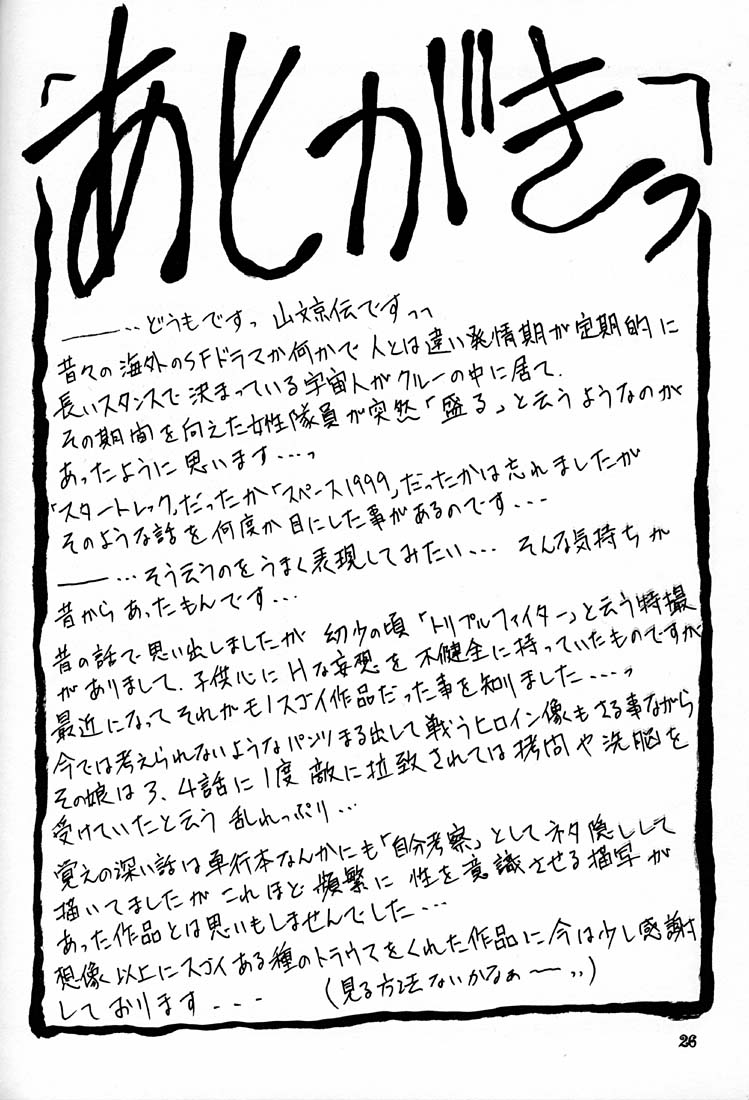 「あとがきっ」
——‥どうもですっ 山文京伝ですっっ
昔々の海外のSFドラマか何かで人とは違い発情期が定期的に
長いスタンスで決まっている宇宙人がクルーの中に居て.
その期間を向えた女性隊員が突然「盛る」と云うようなのが
あったように思います…っ
「スタートレック」だったか「スペース1999」だったかは忘れましたが
そのような話を何度か目にした事があるのです…
——…そう云うのをうまく表現してみたい… そんな気持ちが
昔からあったもんです…
昔の話で思い出しましたが 幼少の頃「トリプルファイター」と云う特撮
がありまして.子供心にHな妄想を不健全に持っていたものですが
最近になってそれがモノスゴイ作品だった事を知りました…っ
今では考えられないようなパンツまる出しで戦うヒロイン像もさる事ながら
その娘は3、4話に1度 敵に拉致されては拷問や洗脳を
受けていたと云う乱れっぷり…
覚えの深い話は単行本なんかにも「自分考察」としてネタ隠しして
描いてましたが これほど頻繁に 性を意識させる描写が
あった作品とは思いもしませんでした…
想像以上にスゴイある種のトラウマをくれた作品に今は少し感謝
しております… (見る方法ないかなぁー‥)
26